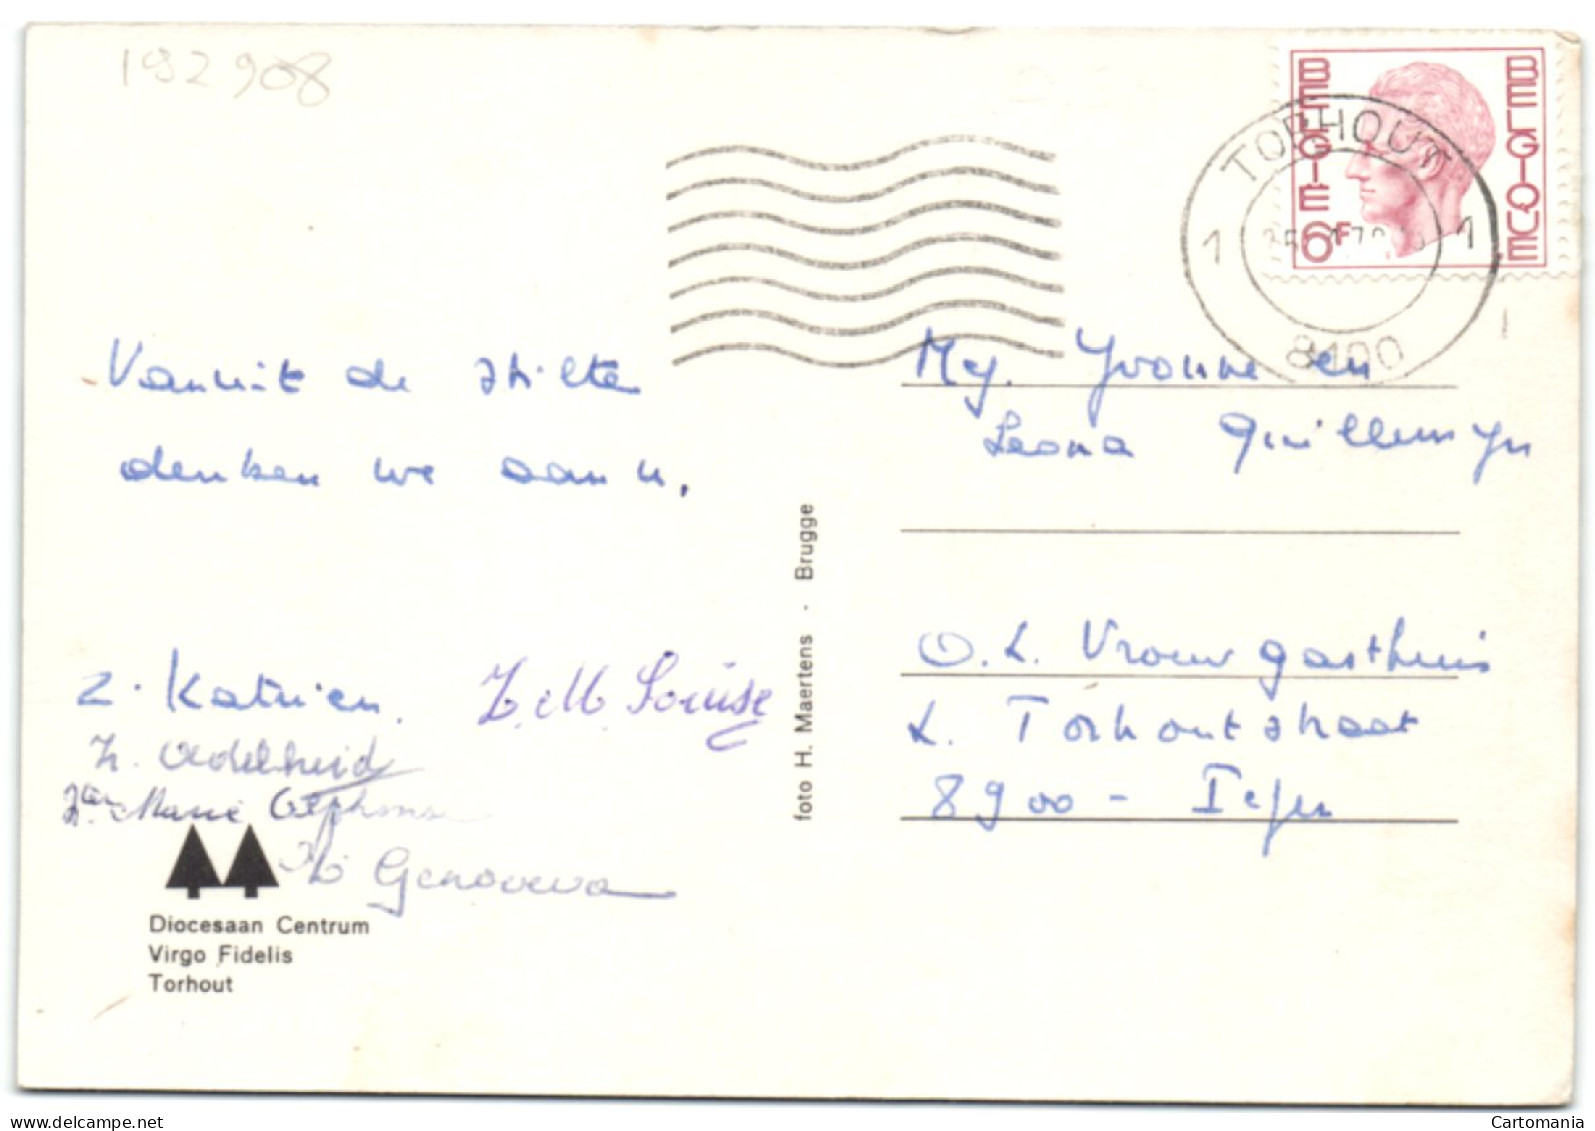 192908
BELGIE
BELGIQUE
6F
TORHOUT
1 1
8100
Vanuit de stilte
denken we aan u.
Mej. Yvonne en
Leona Guillemyn
O.L. Vrouw gasthuis
L. Torhoutstraat
8900 - Ieper
Z. Katrien. Z. M. Louise
Z. Adelheid
Zr. Marie
Zr Genoveva
Diocesaan Centrum
Virgo Fidelis
Torhout
foto H. Maertens · Brugge
Cartomania